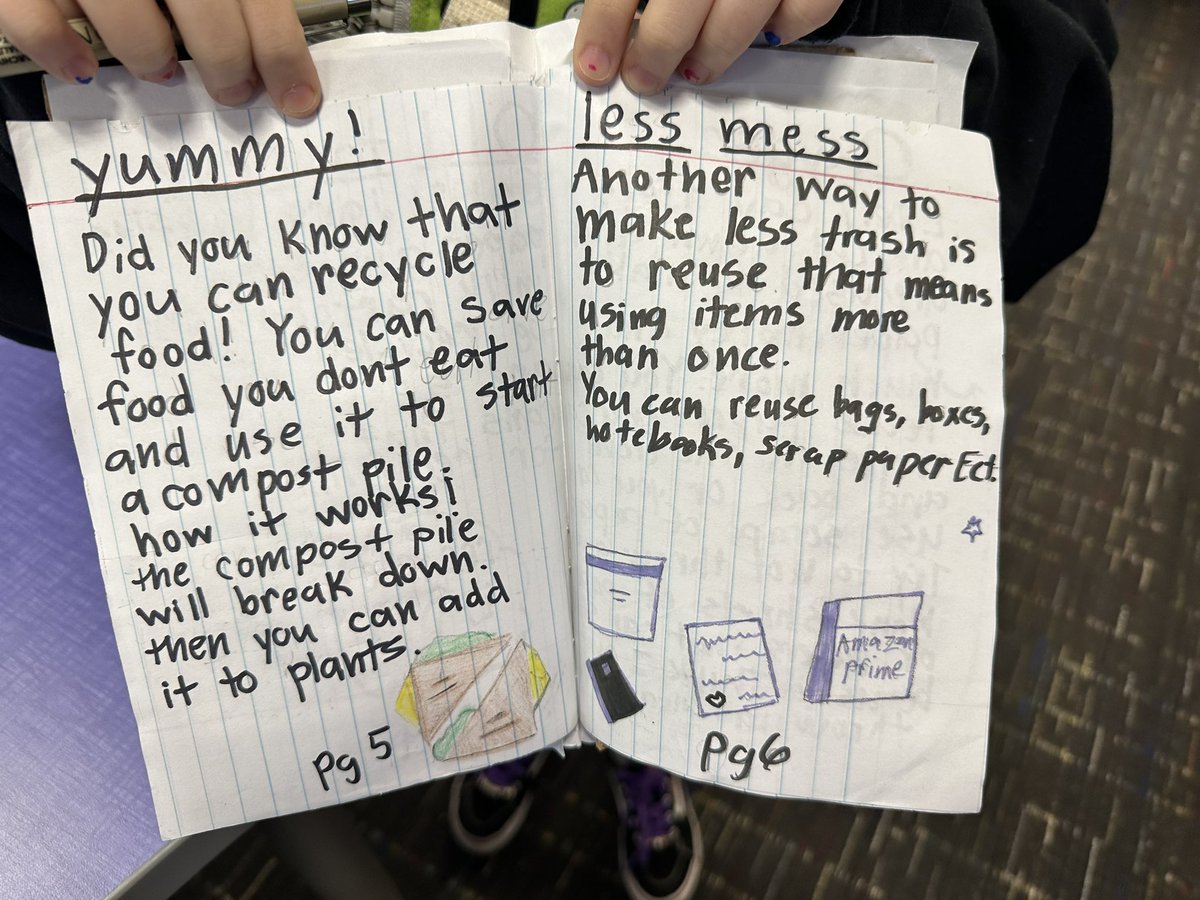 yummy!
Did you know that
you can recycle
food! You can save
food you dont eat
and use it to start
a compost pile.
how it works:
the compost pile
will break down.
then you can add
it to plants.
pg 5
less mess
Another way to
make less trash is
to reuse that means
using items more
than once.
You can reuse bags, boxes,
notebooks, scrap paper Ect.
Amazon
prime
Pg 6